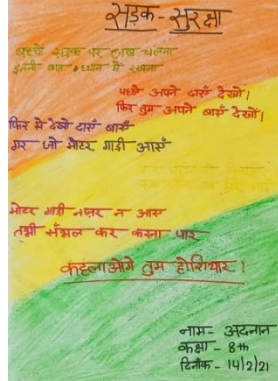 सड़क - सुरक्षा
बच्चों सड़क पर जब चलना
इतनी बात ध्यान में रखना
पहले अपने दाएँ देखो।
फिर तुम अपने बाएँ देखो।
फिर से देखो दाएँ बाएँ
गर जो मोटर गाड़ी आएँ
मोटर गाड़ी नज़र न आए
तभी सँभल कर करना पार
कहलाओगे तुम होशियार।
नाम - अदनान
कक्षा - 8th
दिनाँक - 14/2/21